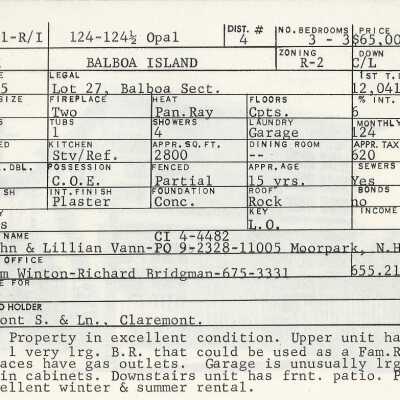 1-R/I 124-124½ Opal DIST. # 4 NO. BEDROOMS 3 - 3 PRICE $65,00
BALBOA ISLAND ZONING R-2 DOWN C/L
5 LEGAL Lot 27, Balboa Sect. 1ST T.D 12,041
SIZE FIREPLACE Two HEAT Pan.Ray FLOORS Cpts. % INT. 6
RS TUBS 1 SHOWERS 4 LAUNDRY Garage MONTHLY 124
ED KITCHEN Stv/Ref. APPR. SQ. FT. 2800 DINING ROOM -- APPR. TAX 620
E. DBL. POSSESSION C.O.E. FENCED Partial APPR. AGE 15 yrs. SEWERS Yes
SH INT. FINISH Plaster FOUNDATION Conc. ROOF Rock BONDS no
s KEY L.O. INCOME
NAME CI 4-4482
hn & Lillian Vann-PO 9-2328-11005 Moorpark, N.H
OFFICE
m Winton-Richard Bridgman-675-3331 655.21
E FOR
D HOLDER
ont S. & Ln., Claremont.
Property in excellent condition. Upper unit ha
1 very lrg. B.R. that could be used as a Fam.R
aces have gas outlets. Garage is unusually lrg
in cabinets. Downstairs unit has frnt. patio. P
ellent winter & summer rental.